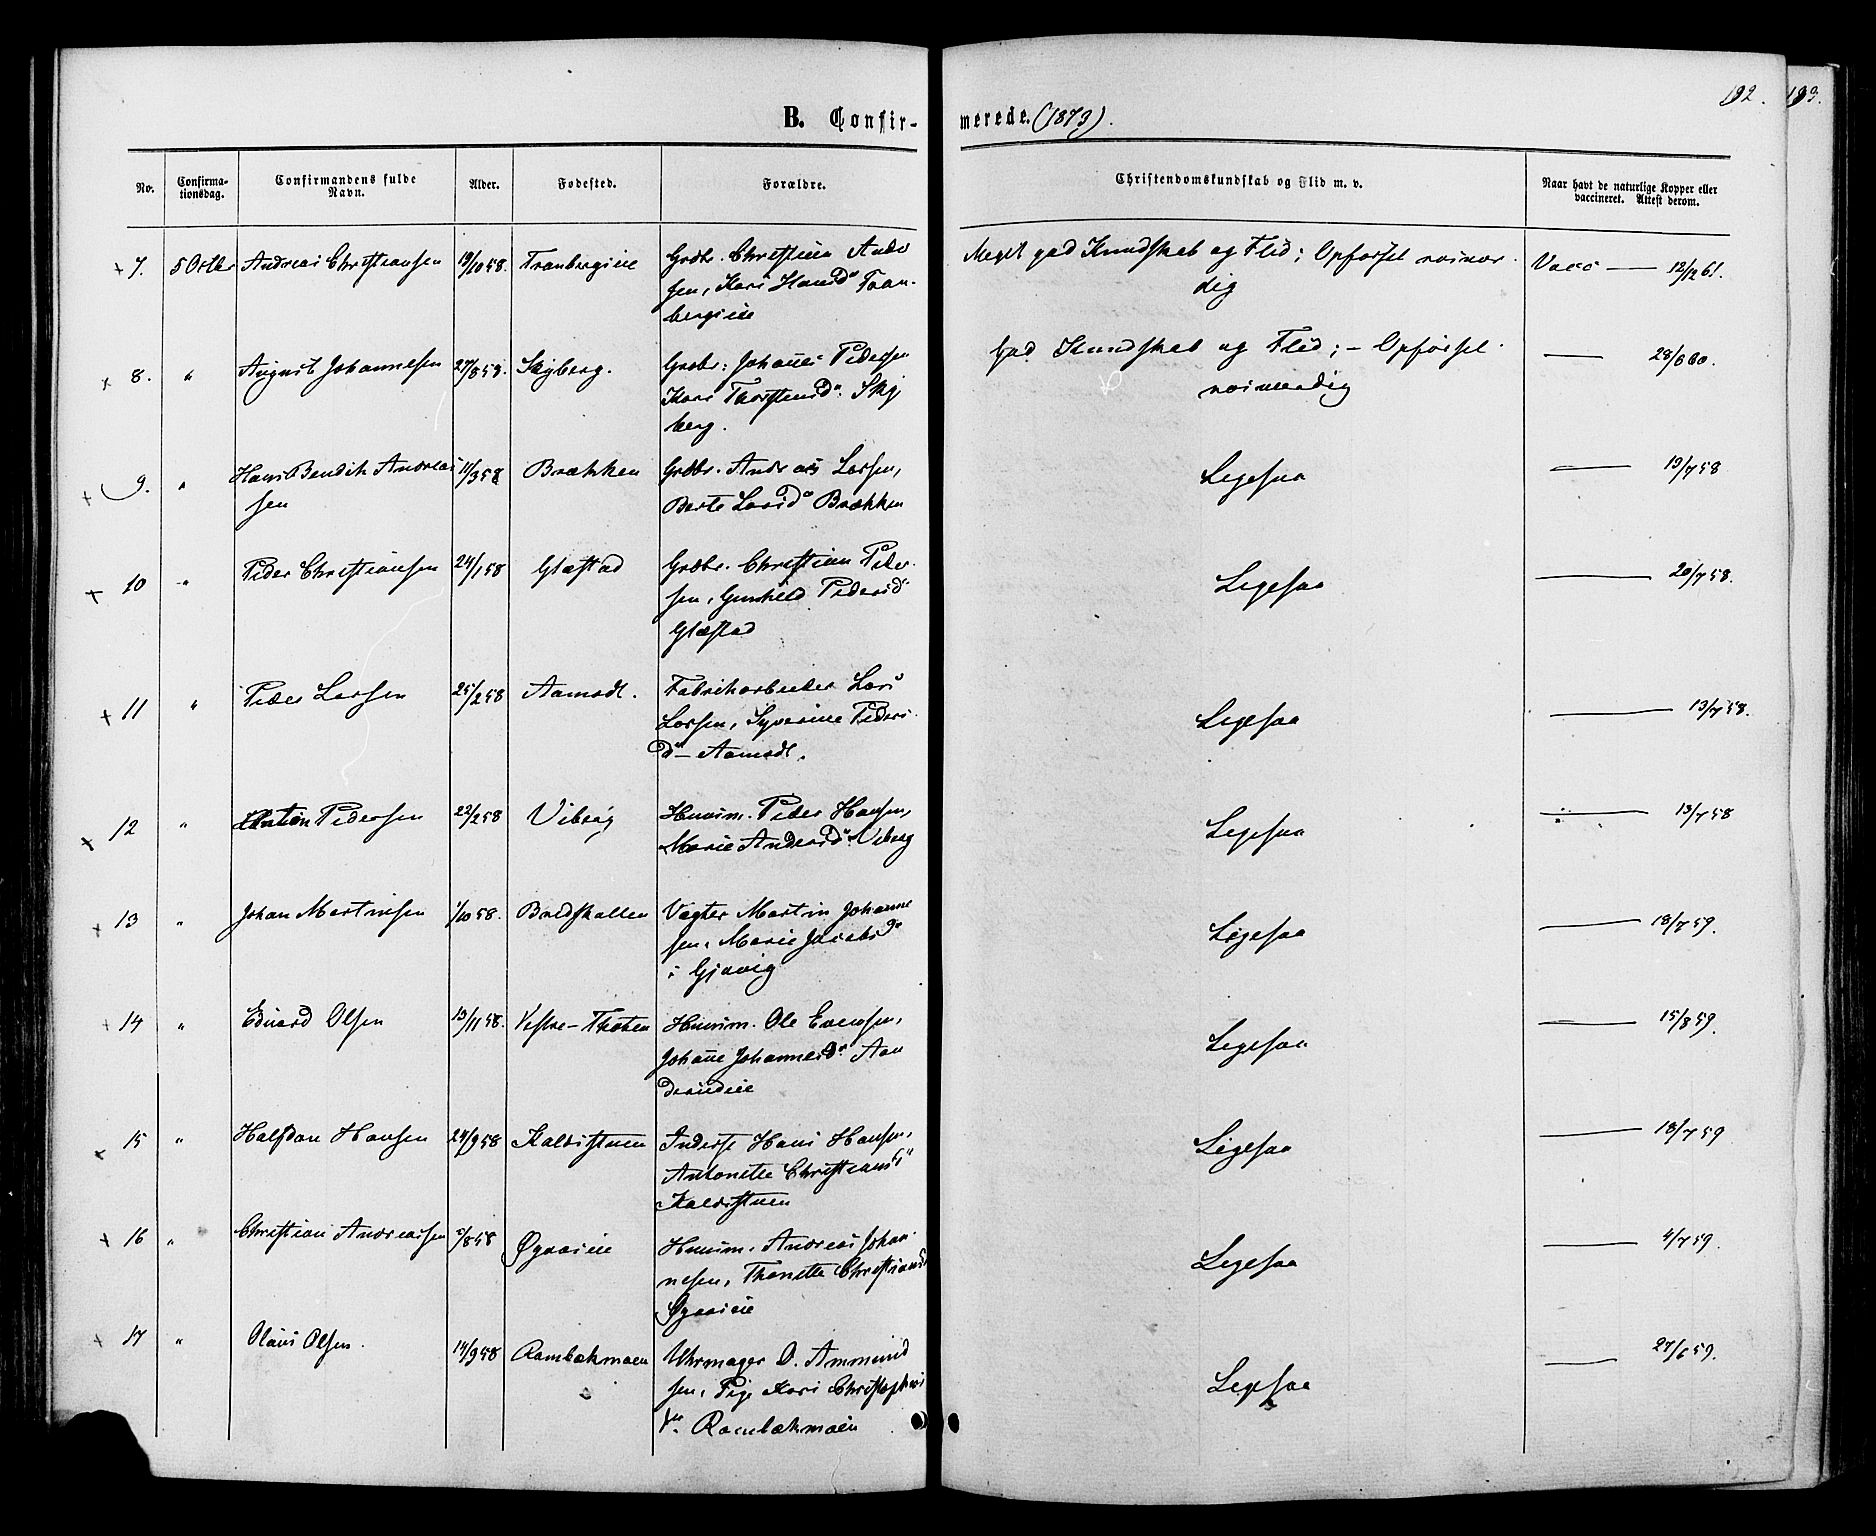 192. 193.
B. Confirmerede. (1873).
No. Confirmationsdag. Confirmandens fulde Navn. Alder. Fødested. Forældre. Christendomskundskab og Flid m. v. Naar havt de naturlige Kopper eller vaccineret. Attest derom.
7. 5 Octbr Andreas Christiansen 19/10 58. Tranbergseie Grdbr. Christian Andersen, Kari Hansd. Tranbergseie Meget god Kundskab og Flid; Opførsel Vacc — 12/12 61.
8. " August Johannesen 27/8 58. Skyberg. Grdbr: Johannes Pedersen Kari Thorstensd. Skyberg. God Kundskab og Flid; – Opførsel — 28/6 60.
9. " Hans Bendik Andreassen 11/3 58 Brækken Grdbr. Andreas Larsen, Berte Larsd. Brækken Ligesaa — 19/7 58
10 " Peder Christiansen 24/1 58 Glæstad Grdbr. Christian Pedersen, Gunhild Pedersd Glæstad Ligesaa — 20/7 58.
11 " Peder Larsen 25/2 58 Aamodt. Fabrikarbeider Lars Larsen, Syverine Pedersd – Aamodt. Ligesaa — 13/7 58.
12 " Anton Pedersen 22/2 58 Viberg Huusm. Peder Hansen, Marie Andersd. Viberg Ligesaa — 13/7 58
13 " Johan Martinsen 1/10 58. Bredskallen Vægter Martin Johannesen, Marie Jacobsd i Gjøvig Ligesaa — 18/7 59.
14 " Eduard Olsen 19/11 58. Vestre-Thoten Huusm. Ole Evensen, Johanne Johannesd. Ligesaa — 15/8 59.
15 " Halfdan Hansen 24/9 58 Kaldsstuen Inderst Hans Hansen, Antonette Christiansd Kaldsstuen Ligesaa — 18/7 59
16 " Christian Andreassen /8 58 Øgaaseie Huusm. Andreas Johannesen, Thonette Christiansd Øgaaseie Ligesaa — 4/7 59.
17 " Olaus Olsen. 14/9 58 Rambækmoen Uhrmager O. Ammundsen, Pige Kari Christophersdtr. Rambækmoen Ligesaa — 27/6 59.